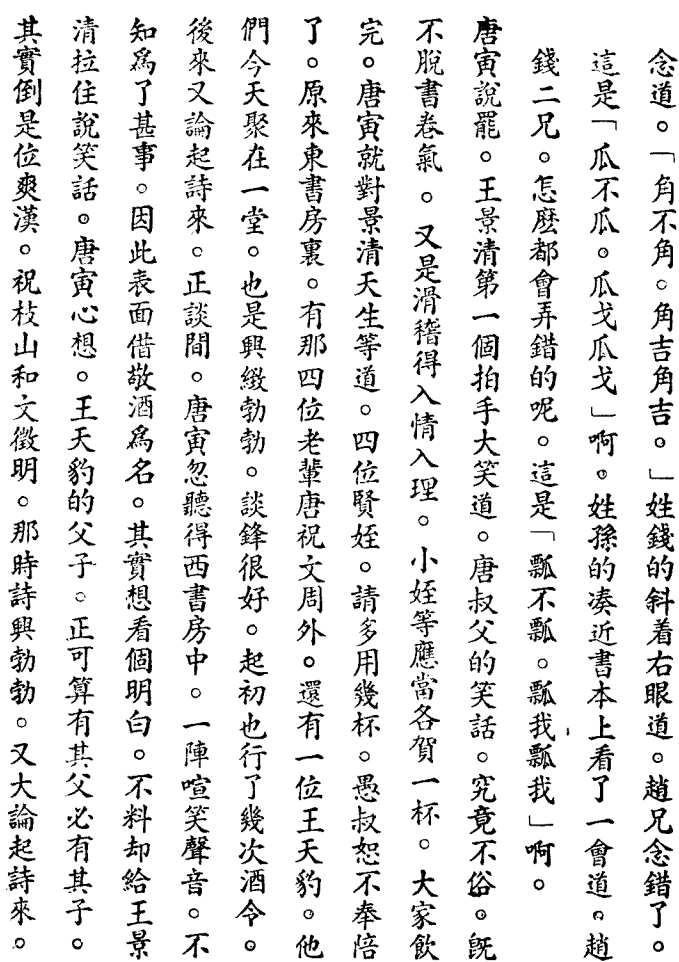 念道。「角不角。角吉角吉。」姓錢的斜着右眼道。趙兄念錯了。
這是「瓜不瓜。瓜戈瓜戈」啊。姓孫的湊近書本上看了一會道。趙
錢二兄。怎麽都會弄錯的呢。這是「瓢不瓢。瓢我瓢我」啊。
唐寅說罷。王景清第一個拍手大笑道。唐叔父的笑話。究竟不俗。旣
不脫書卷氣。又是滑稽得入情入理。小姪等應當各賀一杯。大家飮
完。唐寅就對景清天生等道。四位賢姪。請多用幾杯。愚叔恕不奉陪
了。原來東書房裏。有那四位老輩唐祝文周外。還有一位王天豹。他
們今天聚在一堂。也是興緻勃勃。談鋒很好。起初也行了幾次酒令。
後來又論起詩來。正談間。唐寅忽聽得西書房中。一陣喧笑聲音。不
知爲了甚事。因此表面借敬酒爲名。其實想看個明白。不料却給王景
清拉住說笑話。唐寅心想。王天豹的父子。正可算有其父必有其子。
其實倒是位爽漢。祝枝山和文徵明。那時詩興勃勃。又大論起詩來。